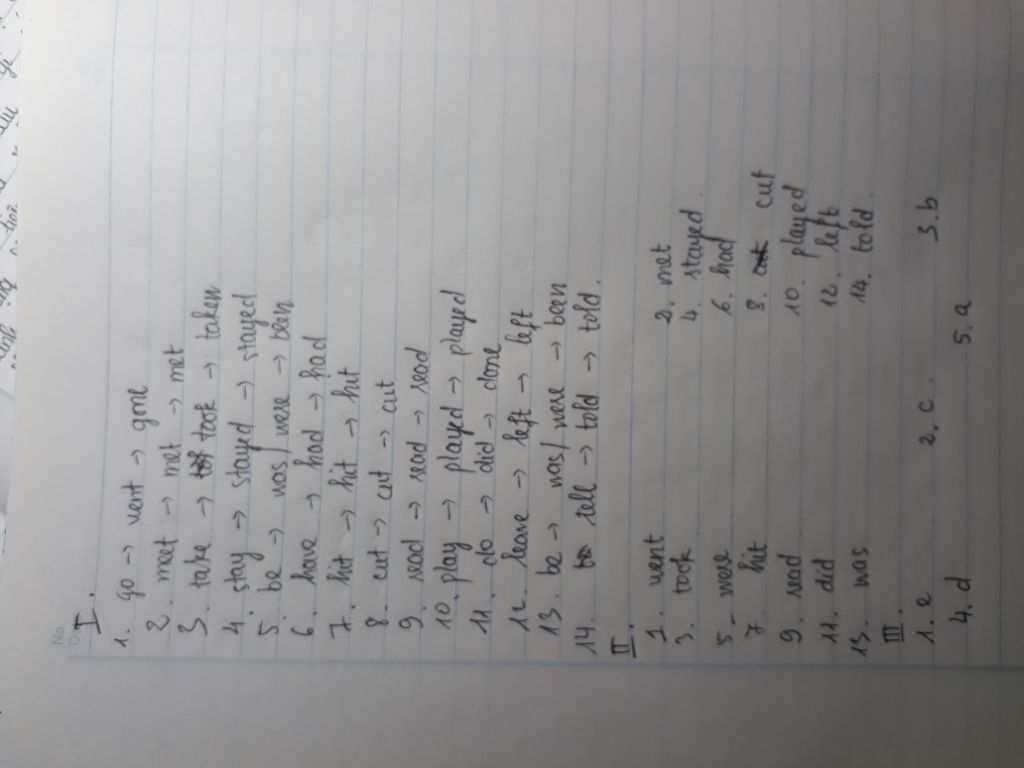 No.
I.
1. go → went → gone
2. meet → met → met
3. take → took → taken
4. stay → stayed → stayed
5. be → was/were → been
6. have → had → had
7. hit → hit → hit
8. cut → cut → cut
9. read → read → read
10. play → played → played
11. do → did → done
12. leave → left → left
13. be → was/were → been
14. tell → told → told.
II.
1. went 2. met
3. took 4. stayed.
5. were 6. had
7. hit 8. cut
9. read 10. played
11. did 12. left
13. was 14. told.
III.
1. e 2. c. 3. b
4. d 5. a